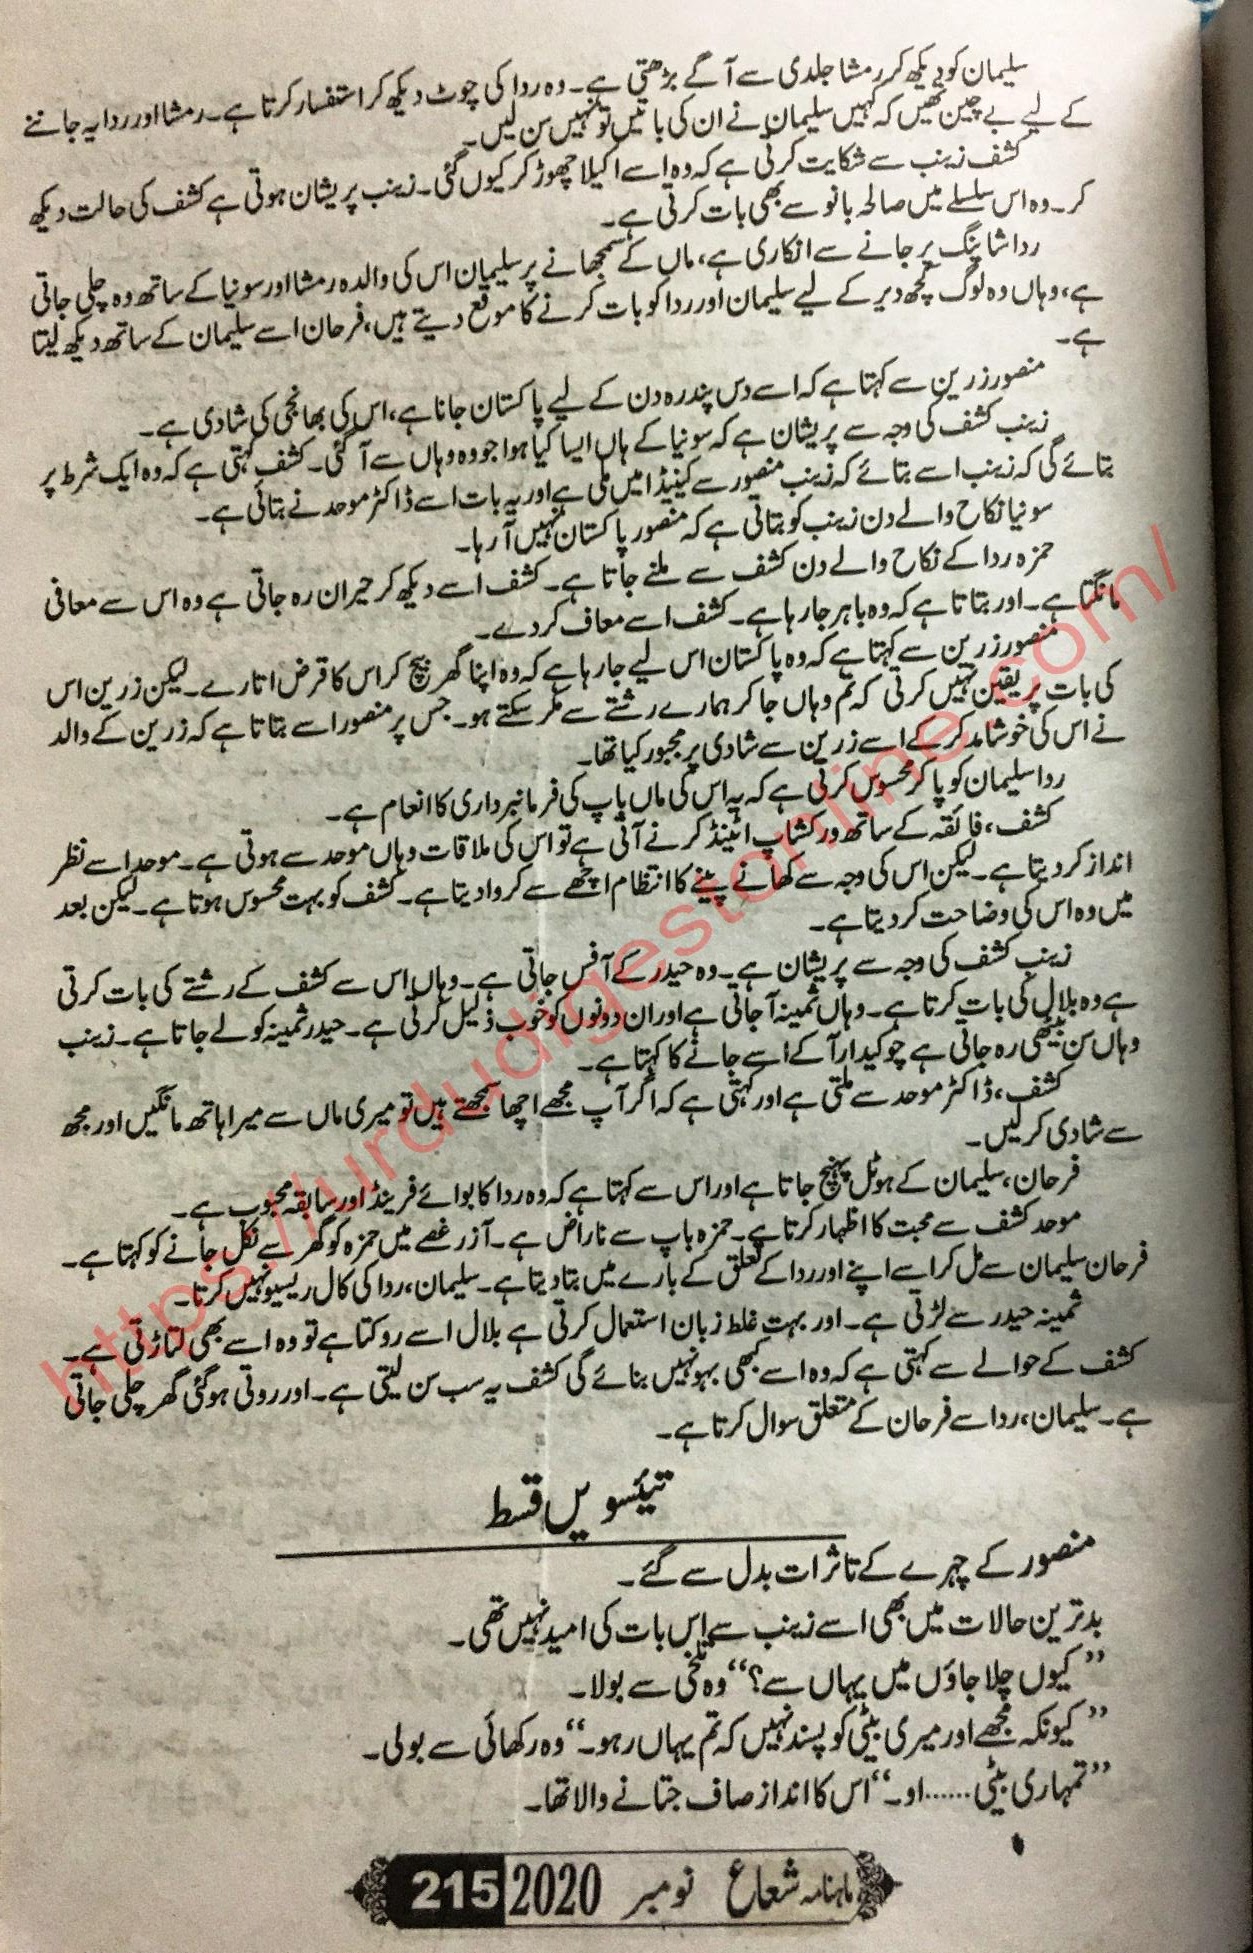 سلیمان کو دیکھ کر رمشا جلدی سے آگے بڑھتی ہے۔ وہ ردا کی چوٹ دیکھ کر استفسار کرتا ہے۔ رمشا اور ردا یہ جاننے
کے لیے بے چین تھیں کہ کہیں سلیمان نے ان کی باتیں تو نہیں سن لیں۔
کشف زینب سے شکایت کرتی ہے کہ وہ اسے اکیلا چھوڑ کر کیوں گئی۔ زینب پریشان ہوتی ہے کشف کی حالت دیکھ
کر۔ وہ اس سلسلے میں صالحہ بانو سے بھی بات کرتی ہے۔
ردا شاپنگ پر جانے سے انکاری ہے، ماں کے سمجھانے پر سلیمان اس کی والدہ رمشا اور سونیا کے ساتھ وہ چلی جاتی
ہے، وہاں وہ لوگ کچھ دیر کے لیے سلیمان اور ردا کو بات کرنے کا موقع دیتے ہیں، فرحان اسے سلیمان کے ساتھ دیکھ لیتا
ہے۔
منصور زرین سے کہتا ہے کہ اسے دس پندرہ دن کے لیے پاکستان جانا ہے، اس کی بھانجی کی شادی ہے۔
زینب کشف کی وجہ سے پریشان ہے کہ سونیا کے ہاں ایسا کیا ہوا جو وہ وہاں سے آ گئی۔ کشف کہتی ہے کہ وہ ایک شرط پر
بتائے گی کہ زینب اسے بتائے کہ زینب منصور سے کینیڈا میں ملی ہے اور یہ بات اسے ڈاکٹر موحد نے بتائی ہے۔
سونیا نکاح والے دن زینب کو بتاتی ہے کہ منصور پاکستان نہیں آ رہا۔
حمزہ ردا کے نکاح والے دن کشف سے ملنے جاتا ہے۔ کشف اسے دیکھ کر حیران رہ جاتی ہے وہ اس سے معافی
مانگتا ہے۔ اور بتاتا ہے کہ وہ باہر جا رہا ہے۔ کشف اسے معاف کر دے۔
منصور زرین سے کہتا ہے کہ وہ پاکستان اس لیے جا رہا ہے کہ وہ اپنا گھر بیچ کر اس کا قرض اتارے۔ لیکن زرین اس
کی بات پر یقین نہیں کرتی کہ تم وہاں جا کر ہمارے رشتے سے مکر سکتے ہو۔ جس پر منصور اسے بتاتا ہے کہ زرین کے والد
نے اس کی خوشامد کر کے اسے زرین سے شادی پر مجبور کیا تھا۔
ردا سلیمان کو پا کر محسوس کرتی ہے کہ یہ اس کی ماں باپ کی فرمانبرداری کا انعام ہے۔
کشف، فائقہ کے ساتھ ورکشاپ اٹینڈ کرنے آتی ہے تو اس کی ملاقات وہاں موحد سے ہوتی ہے۔ موحد اسے نظر
انداز کر دیتا ہے۔ لیکن اس کی وجہ سے کھانے پینے کا انتظام اچھے سے کروا دیتا ہے۔ کشف کو بہت محسوس ہوتا ہے۔ لیکن بعد
میں وہ اس کی وضاحت کر دیتا ہے۔
زینب کشف کی وجہ سے پریشان ہے۔ وہ حیدر کے آفس جاتی ہے۔ وہاں اس سے کشف کے رشتے کی بات کرتی
ہے وہ بلال کی بات کرتا ہے۔ وہاں ثمینہ آ جاتی ہے اور ان دونوں کو خوب ذلیل کرتی ہے۔ حیدر ثمینہ کو لے جاتا ہے۔ زینب
وہاں سن بیٹھی رہ جاتی ہے چوکیدار آ کے اسے جانے کا کہتا ہے۔
کشف، ڈاکٹر موحد سے ملتی ہے اور کہتی ہے کہ اگر آپ مجھے اچھا سمجھتے ہیں تو میری ماں سے میرا ہاتھ مانگیں اور مجھ
سے شادی کر لیں۔
فرحان، سلیمان کے ہوٹل پہنچ جاتا ہے اور اس سے کہتا ہے کہ وہ ردا کا بوائے فرینڈ اور سابقہ محبوب ہے۔
موحد کشف سے محبت کا اظہار کرتا ہے۔ حمزہ باپ سے ناراض ہے۔ آزر غصے میں حمزہ کو گھر سے نکل جانے کو کہتا ہے۔
فرحان سلیمان سے مل کر اسے اپنے اور ردا کے تعلق کے بارے میں بتا دیتا ہے۔ سلیمان، ردا کی کال ریسیو نہیں کرتا۔
ثمینہ حیدر سے لڑتی ہے۔ اور بہت غلط زبان استعمال کرتی ہے بلال اسے روکتا ہے تو وہ اسے بھی لتاڑتی ہے۔
کشف کے حوالے سے کہتی ہے کہ وہ اسے کبھی بہو نہیں بنائے گی کشف یہ سب سن لیتی ہے۔ اور روتی ہوئی گھر چلی جاتی
ہے۔ سلیمان، ردا سے فرحان کے متعلق سوال کرتا ہے۔
تیئسویں قسط
منصور کے چہرے کے تاثرات بدل سے گئے۔
بدترین حالات میں بھی اسے زینب سے اس بات کی امید نہیں تھی۔
”کیوں چلا جاؤں میں یہاں سے؟“ وہ تلخی سے بولا۔
”کیونکہ مجھے اور میری بیٹی کو پسند نہیں کہ تم یہاں رہو۔“ وہ رکھائی سے بولی۔
”تمہاری بیٹی...... او۔“ اس کا انداز صاف جتانے والا تھا۔
ماہنامہ شعاع نومبر 2020 215
https://urdudigestonline.com/